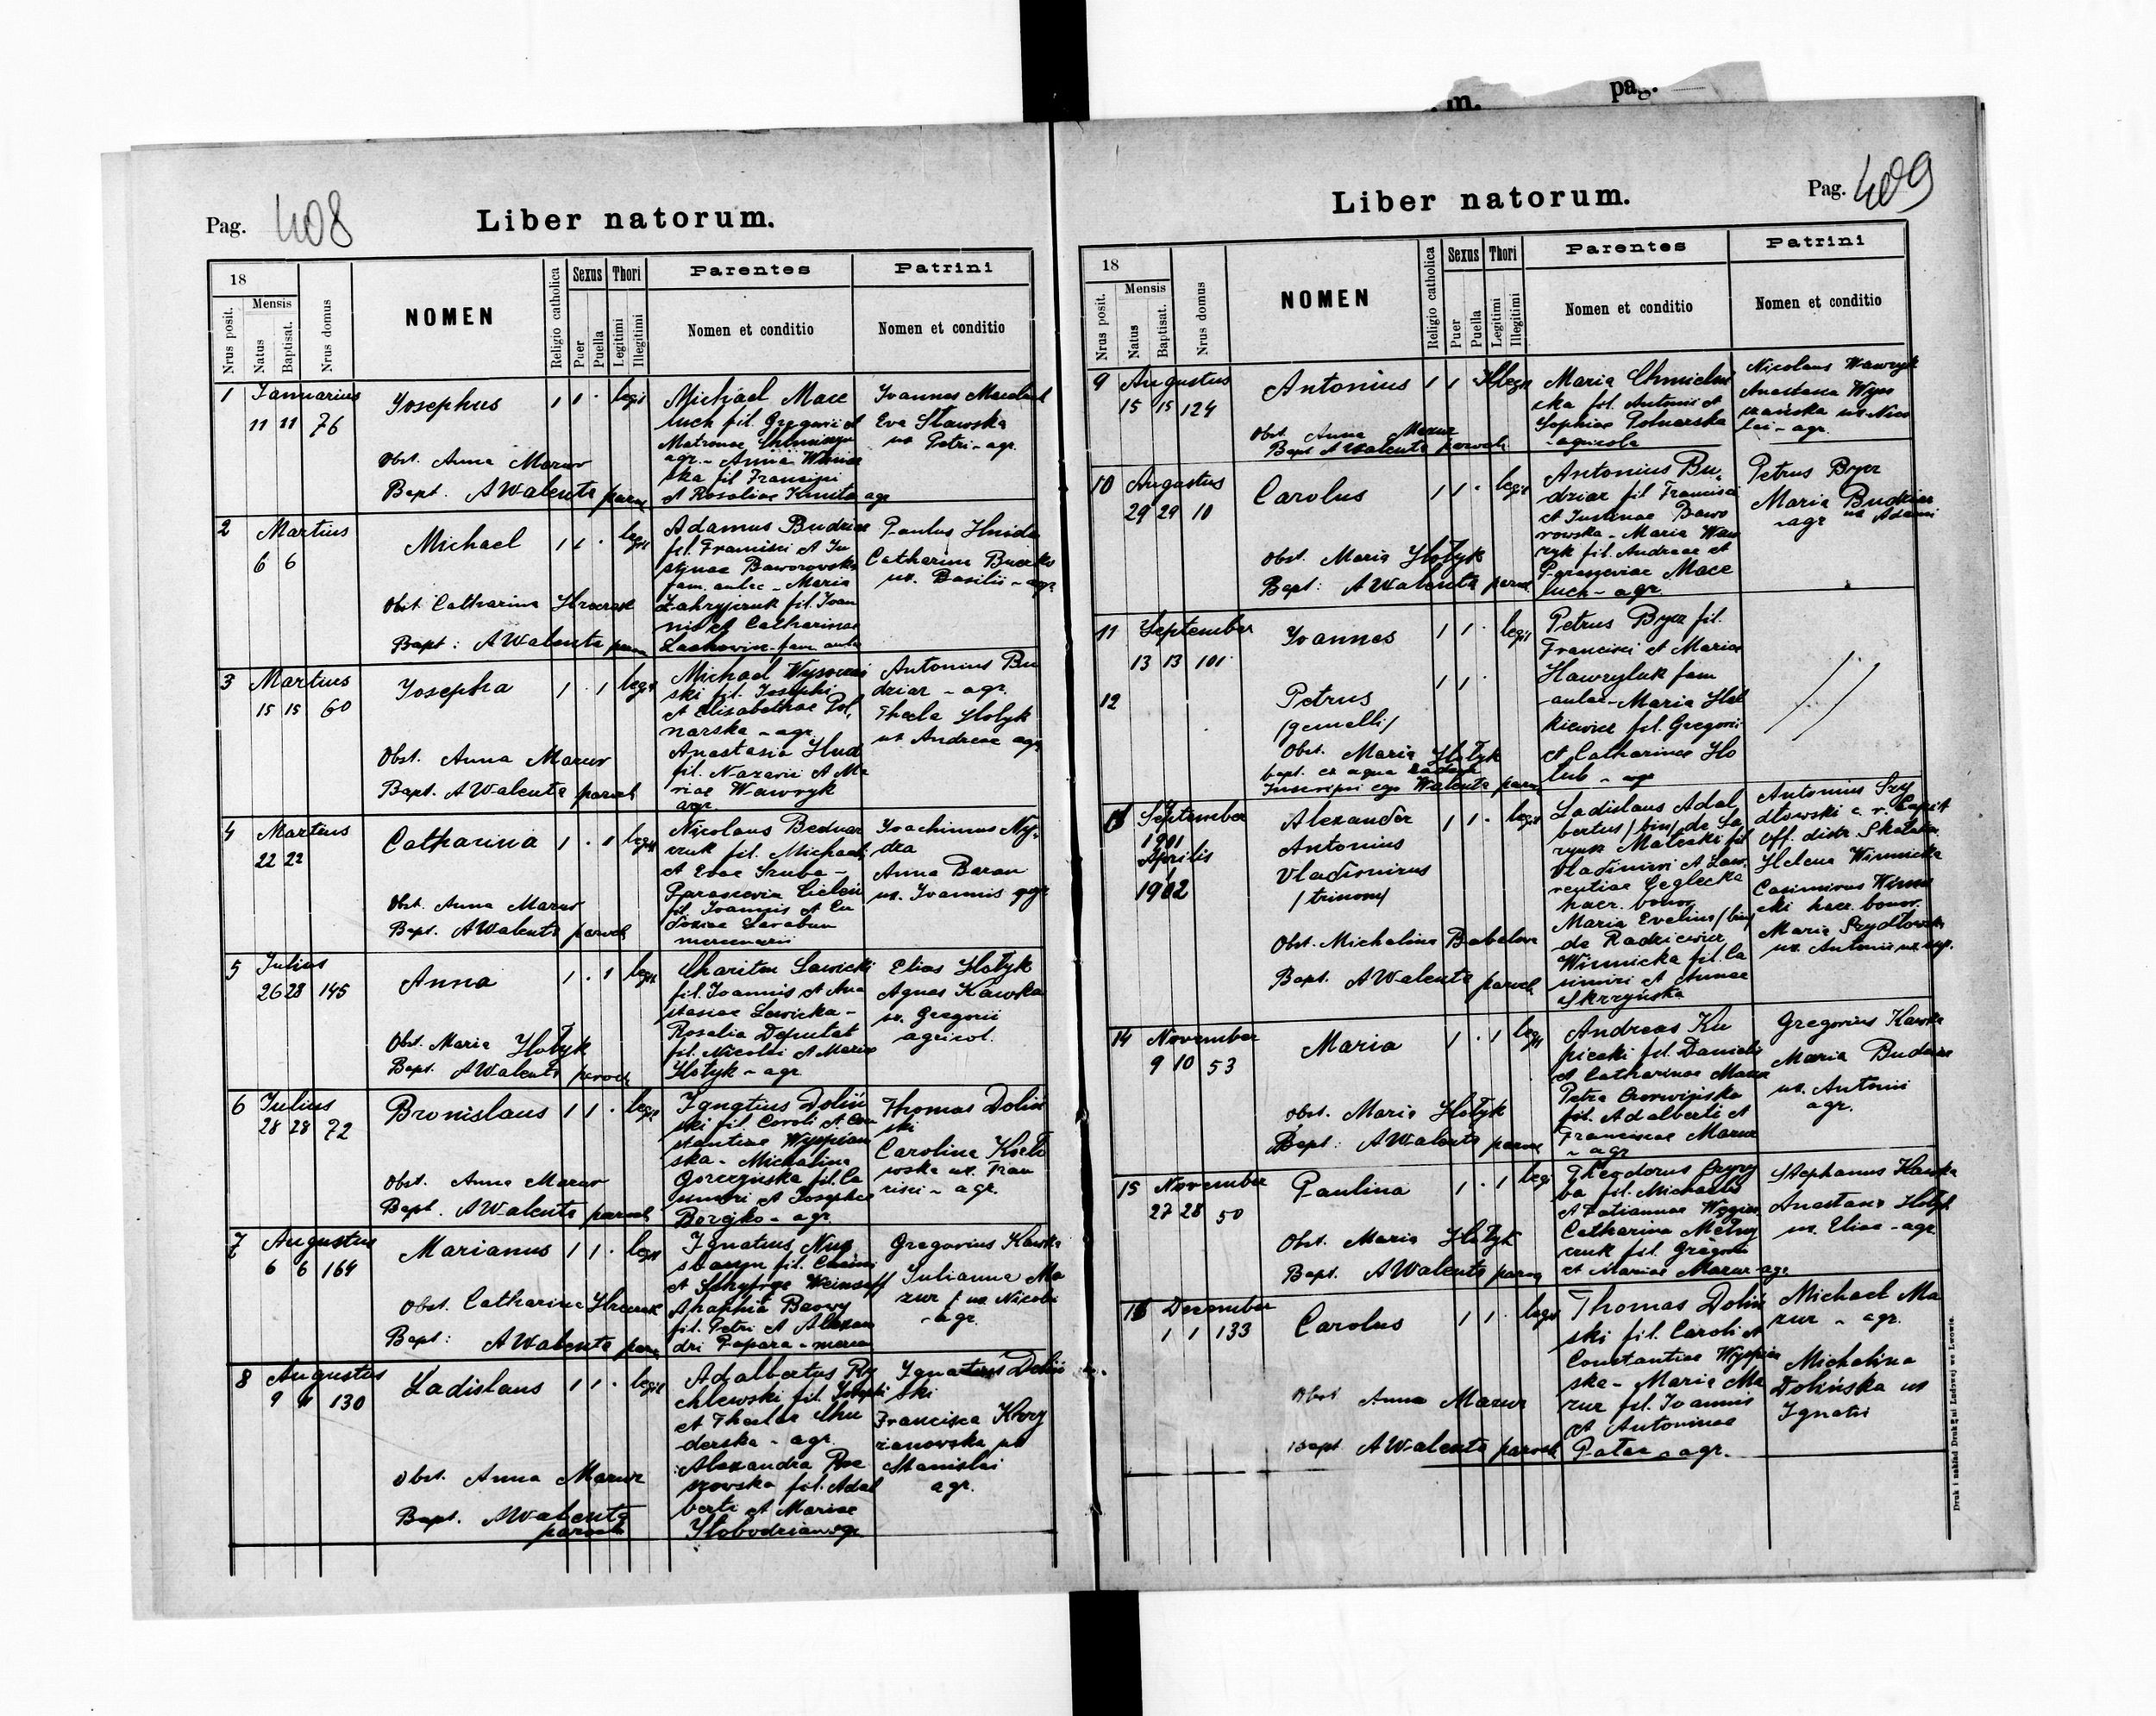 pag.
m.
Pag. 408
Liber natorum.
18
Nrus posit.
Mensis
Natus
Baptisat.
Nrus domus
NOMEN
Religio catholica
Sexus
Puer
Puella
Thori
Legitimi
Illegitimi
Parentes
Nomen et conditio
Patrini
Nomen et conditio
1 Januarius
11 11 76
Josephus
1 1 · legit
Obst. Anna Mazur
Bapt. A Walenta paroch
Michael Mace
luch fil. Gregorii et
Matronae
agr. - Anna
ska fil Francisci
et Rosaliae Kmita agr
Joannes Maceluch
Eva Stawska
ux Petri - agr.
2 Martius
6 6
Michael
1 1 · legit
Obst. Catharina
Bapt: A Walenta paroch
Adamus Budziar
fil. Francisci et Ju
stynae Baworowska
fam. aulic - Maria
Zahryjczuk fil. Joan
nis et Catharinae
Lachowicz - fam. aulic
Paulus Hnida
Catharina Buczko
ux. Basilii - agr
3 Martius
15 15 60
Josepha
1 · 1 legit
Obst. Anna Mazur
Bapt. A Walenta paroch
Michael Wysoczan
ski fil. Josephi
et Elisabethae Pol
narska - agr.
Anastasia Hud
fil. Nazarii et Ma
riae Wawryk
agr.
Antonius Bu
dziar - agr.
Thecla Hołyk
ux Andreae agr
4 Martius
22 22
Catharina
1 · 1 legit
Obst. Anna Mazur
Bapt. A Walenta paroch
Nicolaus Bednar
czuk fil. Michaeli
et Evae Szuba -
Parascevia
fil. Joannis et Eu
doxiae
mercenarii
Joachimus Ny
dza
Anna Baran
ux. Joannis agr
5 Julius
26 28 145
Anna
1 · 1 legit
Obst. Maria Hołyk
Bapt. A Walenta paroch
Chariton Sawicki
fil. Joannis et Ana
stasiae Sawicka -
Rosalia Deputat
fil. Nicolai et Mariae
Hołyk - agr
Elias Hołyk
Agnes Kawka
ux. Gregorii
agricol.
6 Julius
28 28 72
Bronislaus
1 1 · legit
Obst. Anna Mazur
Bapt. A Walenta paroch
Ignatius Doliń
ski fil. Caroli et Con
stantiae Wyspiań
ska - Michalina
Gorczyńska fil. Ca
simiri et Josephae
Borejko - agr
Thomas Doliń
ski
Carolina
wska ux. Fran
cisci - agr.
7 Augustus
6 6 164
Marianus
1 1 · legit
Obst. Catharina
Bapt: A Walenta paroch
Ignatius
fil.
et
Anaphia
fil. Petri et Alexan
dri Papara - mercen
Gregorius Kawka
Julianna Ma
zur ux Nicolai
- agr.
8 Augustus
9 11 130
Ladislaus
1 1 · legit
Obst. Anna Mazur
Bapt. A Walenta
paroch
Adalbertus Ry
chlewski fil. Josephi
et Theclae Chu
derska - agr.
Alexandra
szowska fil. Adal
berti et Mariae
Słobodzian agr
Ignatius Doliń
ski
Francisca Krzy
żanowska ux
Stanislai
agr.
Liber natorum.
Pag. 409
18
Nrus posit.
Mensis
Natus
Baptisat.
Nrus domus
NOMEN
Religio catholica
Sexus
Puer
Puella
Thori
Legitimi
Illegitimi
Parentes
Nomen et conditio
Patrini
Nomen et conditio
9 Augustus
15 15 124
Antonius
Obst. Anna Mazur
Bapt A Walenta paroch
Maria Chmielni
cka fil. Antonii et
Sophiae Polnarska
- agricola
Nicolaus Wawryk
Anastasia Wyso
czańska ux. Nico
lai - agr.
10 Augustus
29 29 10
Carolus
1 1 · legit
Obst. Maria Hołyk
Bapt: A Walenta paroch
Antonius Bu
dziar fil Francisci
et Justinae Bawo
rowska - Maria Waw
ryk fil. Andreae et
Parasceviae Mace
luch - agr.
Petrus Bryez
Maria Budziar
- agr ux Adami
11 September
13 13 101
Joannes
1 1 · legit
12
Petrus
/gemelli/
1 1 ·
Obst. Maria Hołyk
bapt. ex aqua
Inscripsi ego Walenta paroch
Petrus Bryez fil.
Francisci et Mariae
Hawryluk fam
aulae - Maria
kiewicz fil. Gregorii
et Catharinae Ho
lub - agr
13 September
1901
Aprilis
1
1902
Alexander
Antonius
Vladimirus
/trinom/
1 1 · legit
Obst. Michalina
Bapt. A Walenta paroch
Ladislaus Adal
bertus /bin/ de La
rynk Małecki fil
Vladimiri et Law
rentiae Geglecka
haer. bonor
Maria Evelina /bin/
de Radziewicz
Winnicka fil. Ca
simiri et Annae
Skrzyńska
Antonius Szy
dłowski c. r.
off. distr. Skałat.
Helena Winnicka
Casimirus Winni
cki haer. bonor.
Maria Szydłowska
ux. Antonii
14 November
9 10 53
Maria
1 · 1 legit
Obst. Maria Hołyk
Bapt: A Walenta paroch
Andreas Ku
picki fil. Danielis
et Catharinae Mazur
Petra Czerwińska
fil. Adalberti et
Franciscae Mazur
- agr
Gregorius Kawka
Maria Budziar
ux. Antonii
agr.
15 November
27 28 50
Paulina
1 · 1 legit
Obst. Maria Hołyk
Bapt. A Walenta paroch
Theodorus
ba fil. Michaelis
et Tatiannae
Catharina Melny
czuk fil. Gregorii
et Mariae Mazur - agr
Stephanus Kawka
Anastasia Hołyk
ux. Eliae - agr
16 December
1 1 133
Carolus
1 1 · legit
Obst Anna Mazur
Bapt A Walenta paroch
Thomas Doliń
ski fil. Caroli et
Constantiae Wyspiań
ska - Maria Ma
zur fil. Joannis
et Antoninae
Pater - agr.
Michael Ma
zur - agr.
Michalina
Dolińska ux
Ignatii
Druk i nakład Drukarni Ludowej we Lwowie.